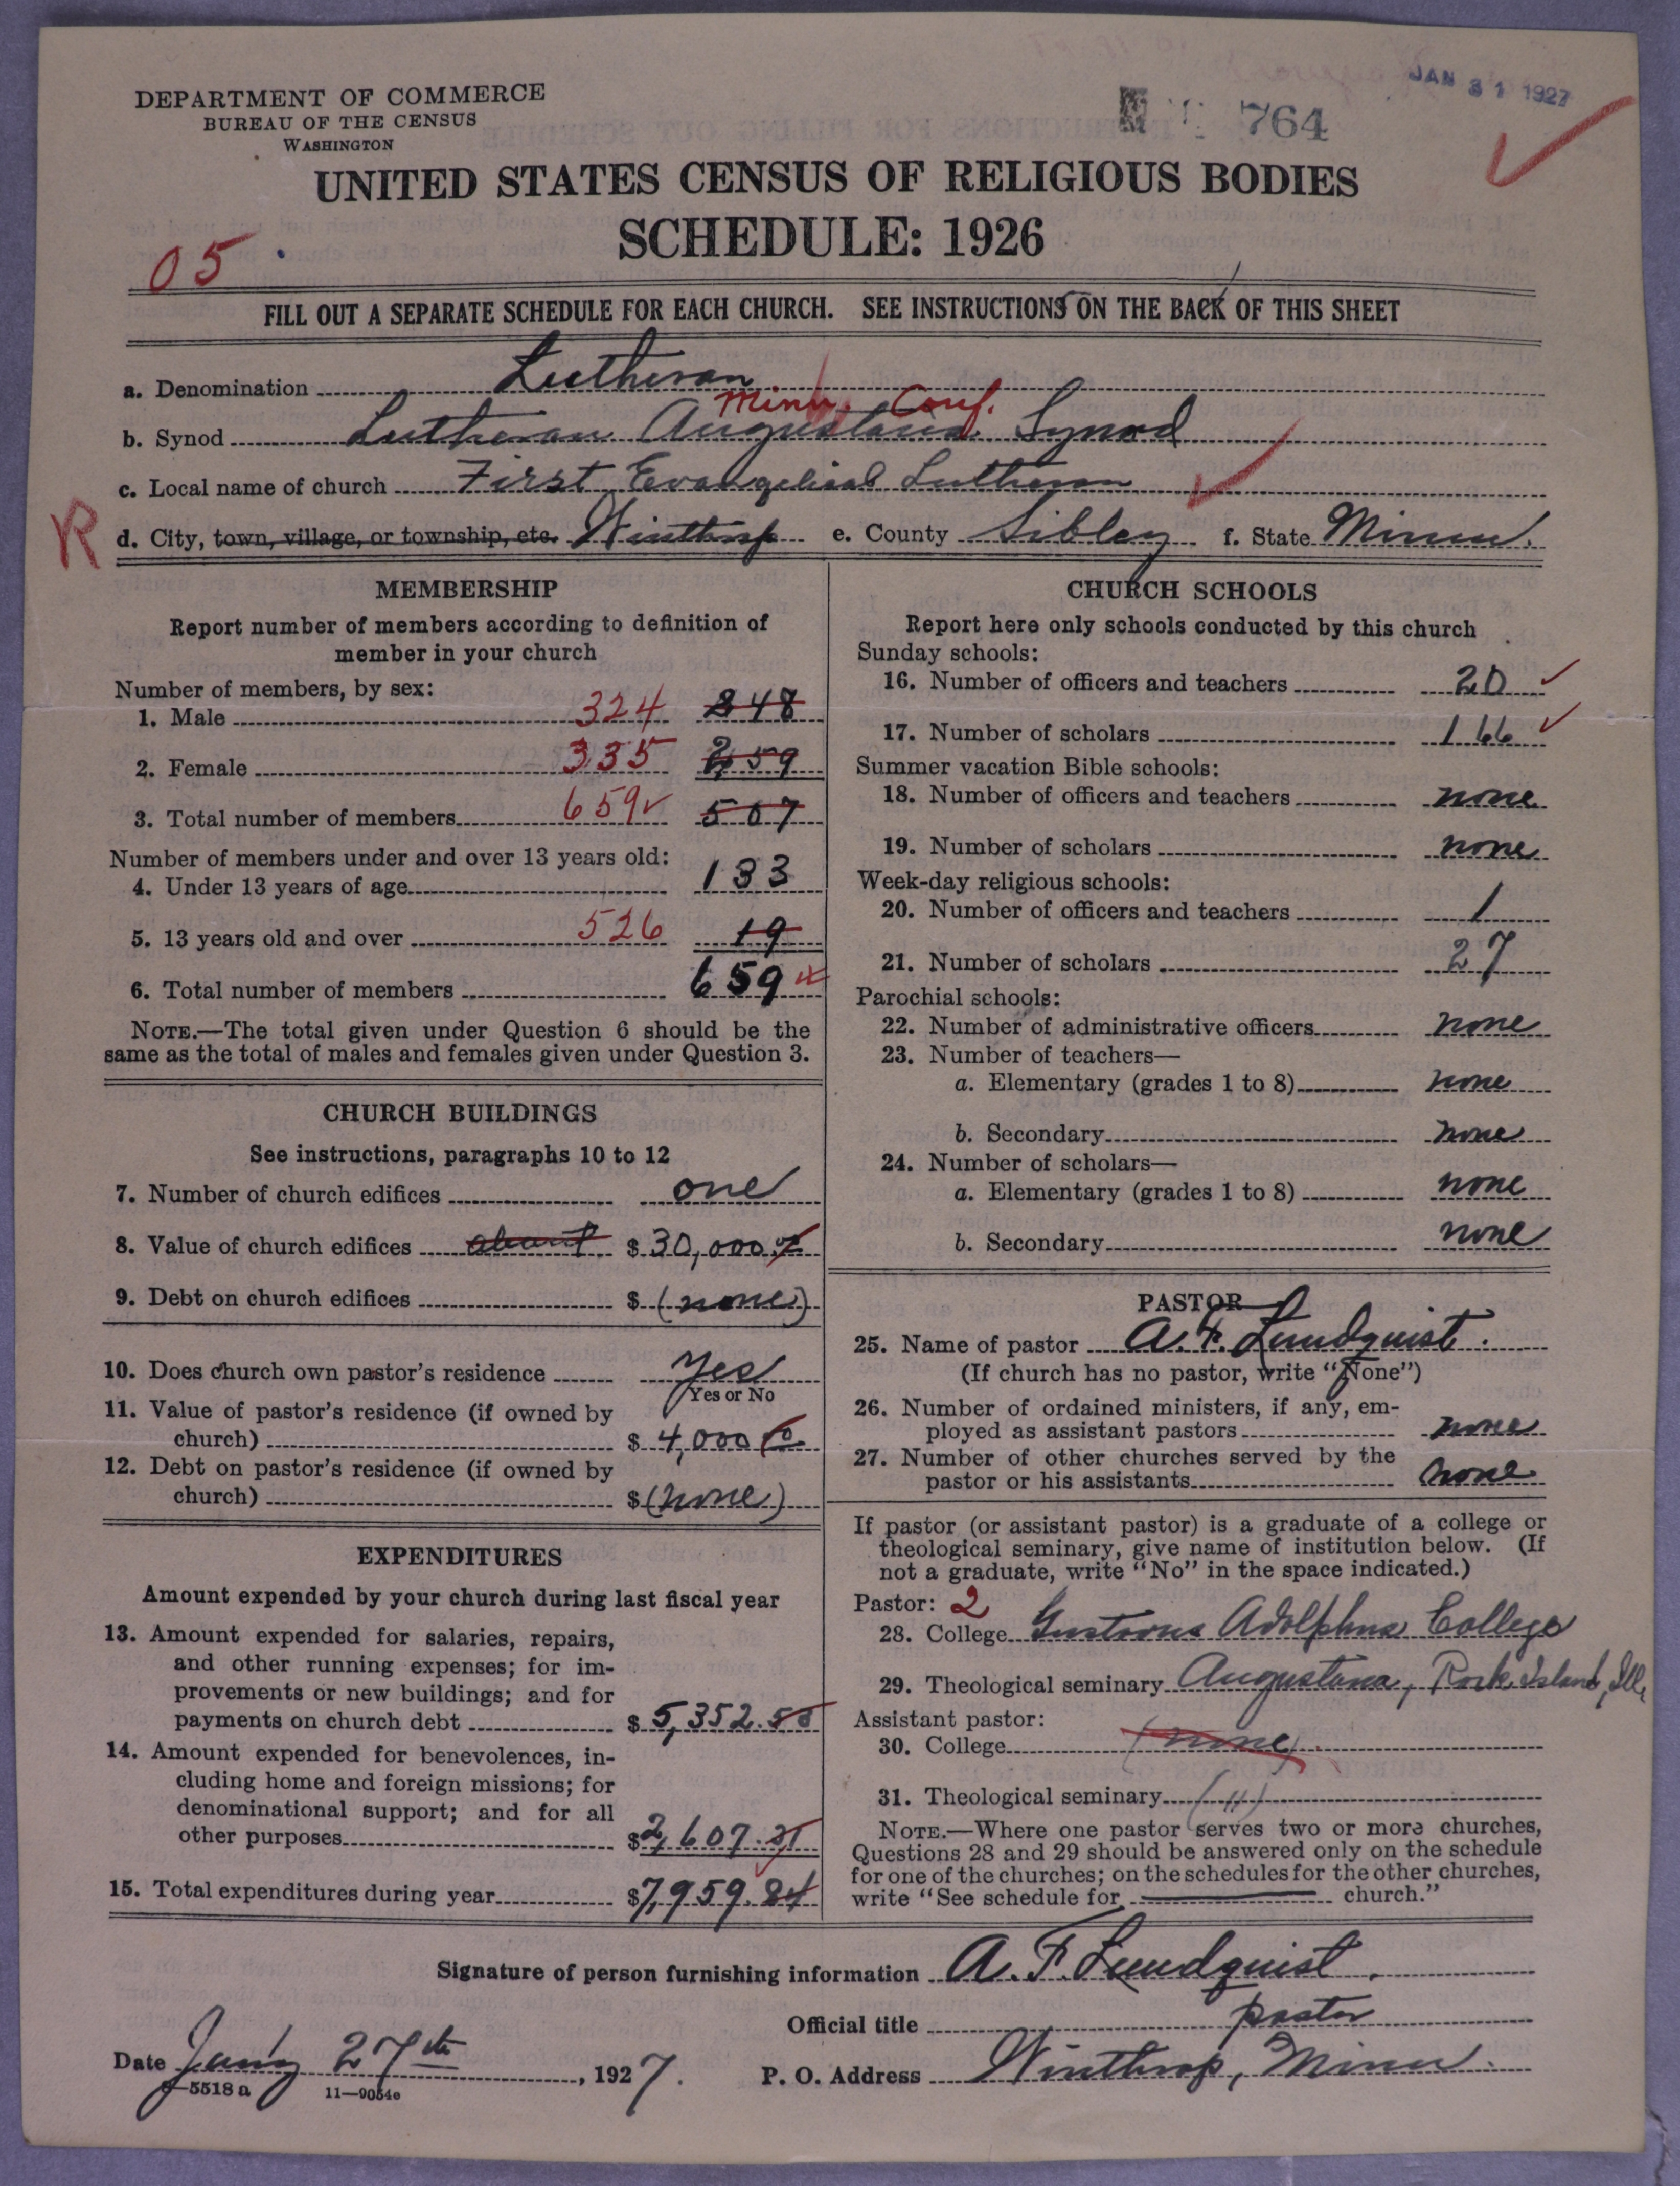 JAN 31 1927
764
DEPARTMENT OF COMMERCE
BUREAU OF THE CENSUS
WASHINGTON
UNITED STATES CENSUS OF RELIGIOUS BODIES
SCHEDULE: 1926
05
FILL OUT A SEPARATE SCHEDULE FOR EACH CHURCH. SEE INSTRUCTIONS ON THE BACK OF THIS SHEET
a. Denomination Lutheran
Minn. Conf.
b. Synod Lutheran Augustana Synod
c. Local name of church First Evangelical Lutheran
R d. City, town, village, or township, etc. Winthrop e. County Sibley f. State Minn.
MEMBERSHIP
Report number of members according to definition of
member in your church
Number of members, by sex:
1. Male 324 248
2. Female 335 259
3. Total number of members 659 507
Number of members under and over 13 years old:
4. Under 13 years of age 133
5. 13 years old and over 526 19
6. Total number of members 659
NOTE.—The total given under Question 6 should be the
same as the total of males and females given under Question 3.
CHURCH BUILDINGS
See instructions, paragraphs 10 to 12
7. Number of church edifices one
8. Value of church edifices about $30,000.00
9. Debt on church edifices $ (none)
10. Does church own pastor's residence Yes
Yes or No
11. Value of pastor's residence (if owned by
church) $ 4,000.00
12. Debt on pastor's residence (if owned by
church) $ (none)
EXPENDITURES
Amount expended by your church during last fiscal year
13. Amount expended for salaries, repairs,
and other running expenses; for im-
provements or new buildings; and for
payments on church debt $ 5,352.
14. Amount expended for benevolences, in-
cluding home and foreign missions; for
denominational support; and for all
other purposes $2,607.
15. Total expenditures during year $7,959.84
CHURCH SCHOOLS
Report here only schools conducted by this church
Sunday schools:
16. Number of officers and teachers 20
17. Number of scholars 166
Summer vacation Bible schools:
18. Number of officers and teachers none
19. Number of scholars none
Week-day religious schools:
20. Number of officers and teachers 1
21. Number of scholars 27
Parochial schools:
22. Number of administrative officers none
23. Number of teachers—
a. Elementary (grades 1 to 8) none
b. Secondary none
24. Number of scholars—
a. Elementary (grades 1 to 8) none
b. Secondary none
PASTOR
25. Name of pastor A. F. Lundquist.
(If church has no pastor, write "None")
26. Number of ordained ministers, if any, em-
ployed as assistant pastors none
27. Number of other churches served by the
pastor or his assistants none
If pastor (or assistant pastor) is a graduate of a college or
theological seminary, give name of institution below. (If
not a graduate, write "No" in the space indicated.)
Pastor: 2
28. College Gustavus Adolphus College
29. Theological seminary Augustana, Rock Island, Ill.
Assistant pastor:
30. College (none)
31. Theological seminary (")
NOTE.—Where one pastor serves two or more churches,
Questions 28 and 29 should be answered only on the schedule
for one of the churches; on the schedules for the other churches,
write "See schedule for church."
Signature of person furnishing information A. F. Lundquist.
Official title pastor
Date 27th, 1927. P. O. Address Winthrop, Minn.
8—5518a 11—9054c